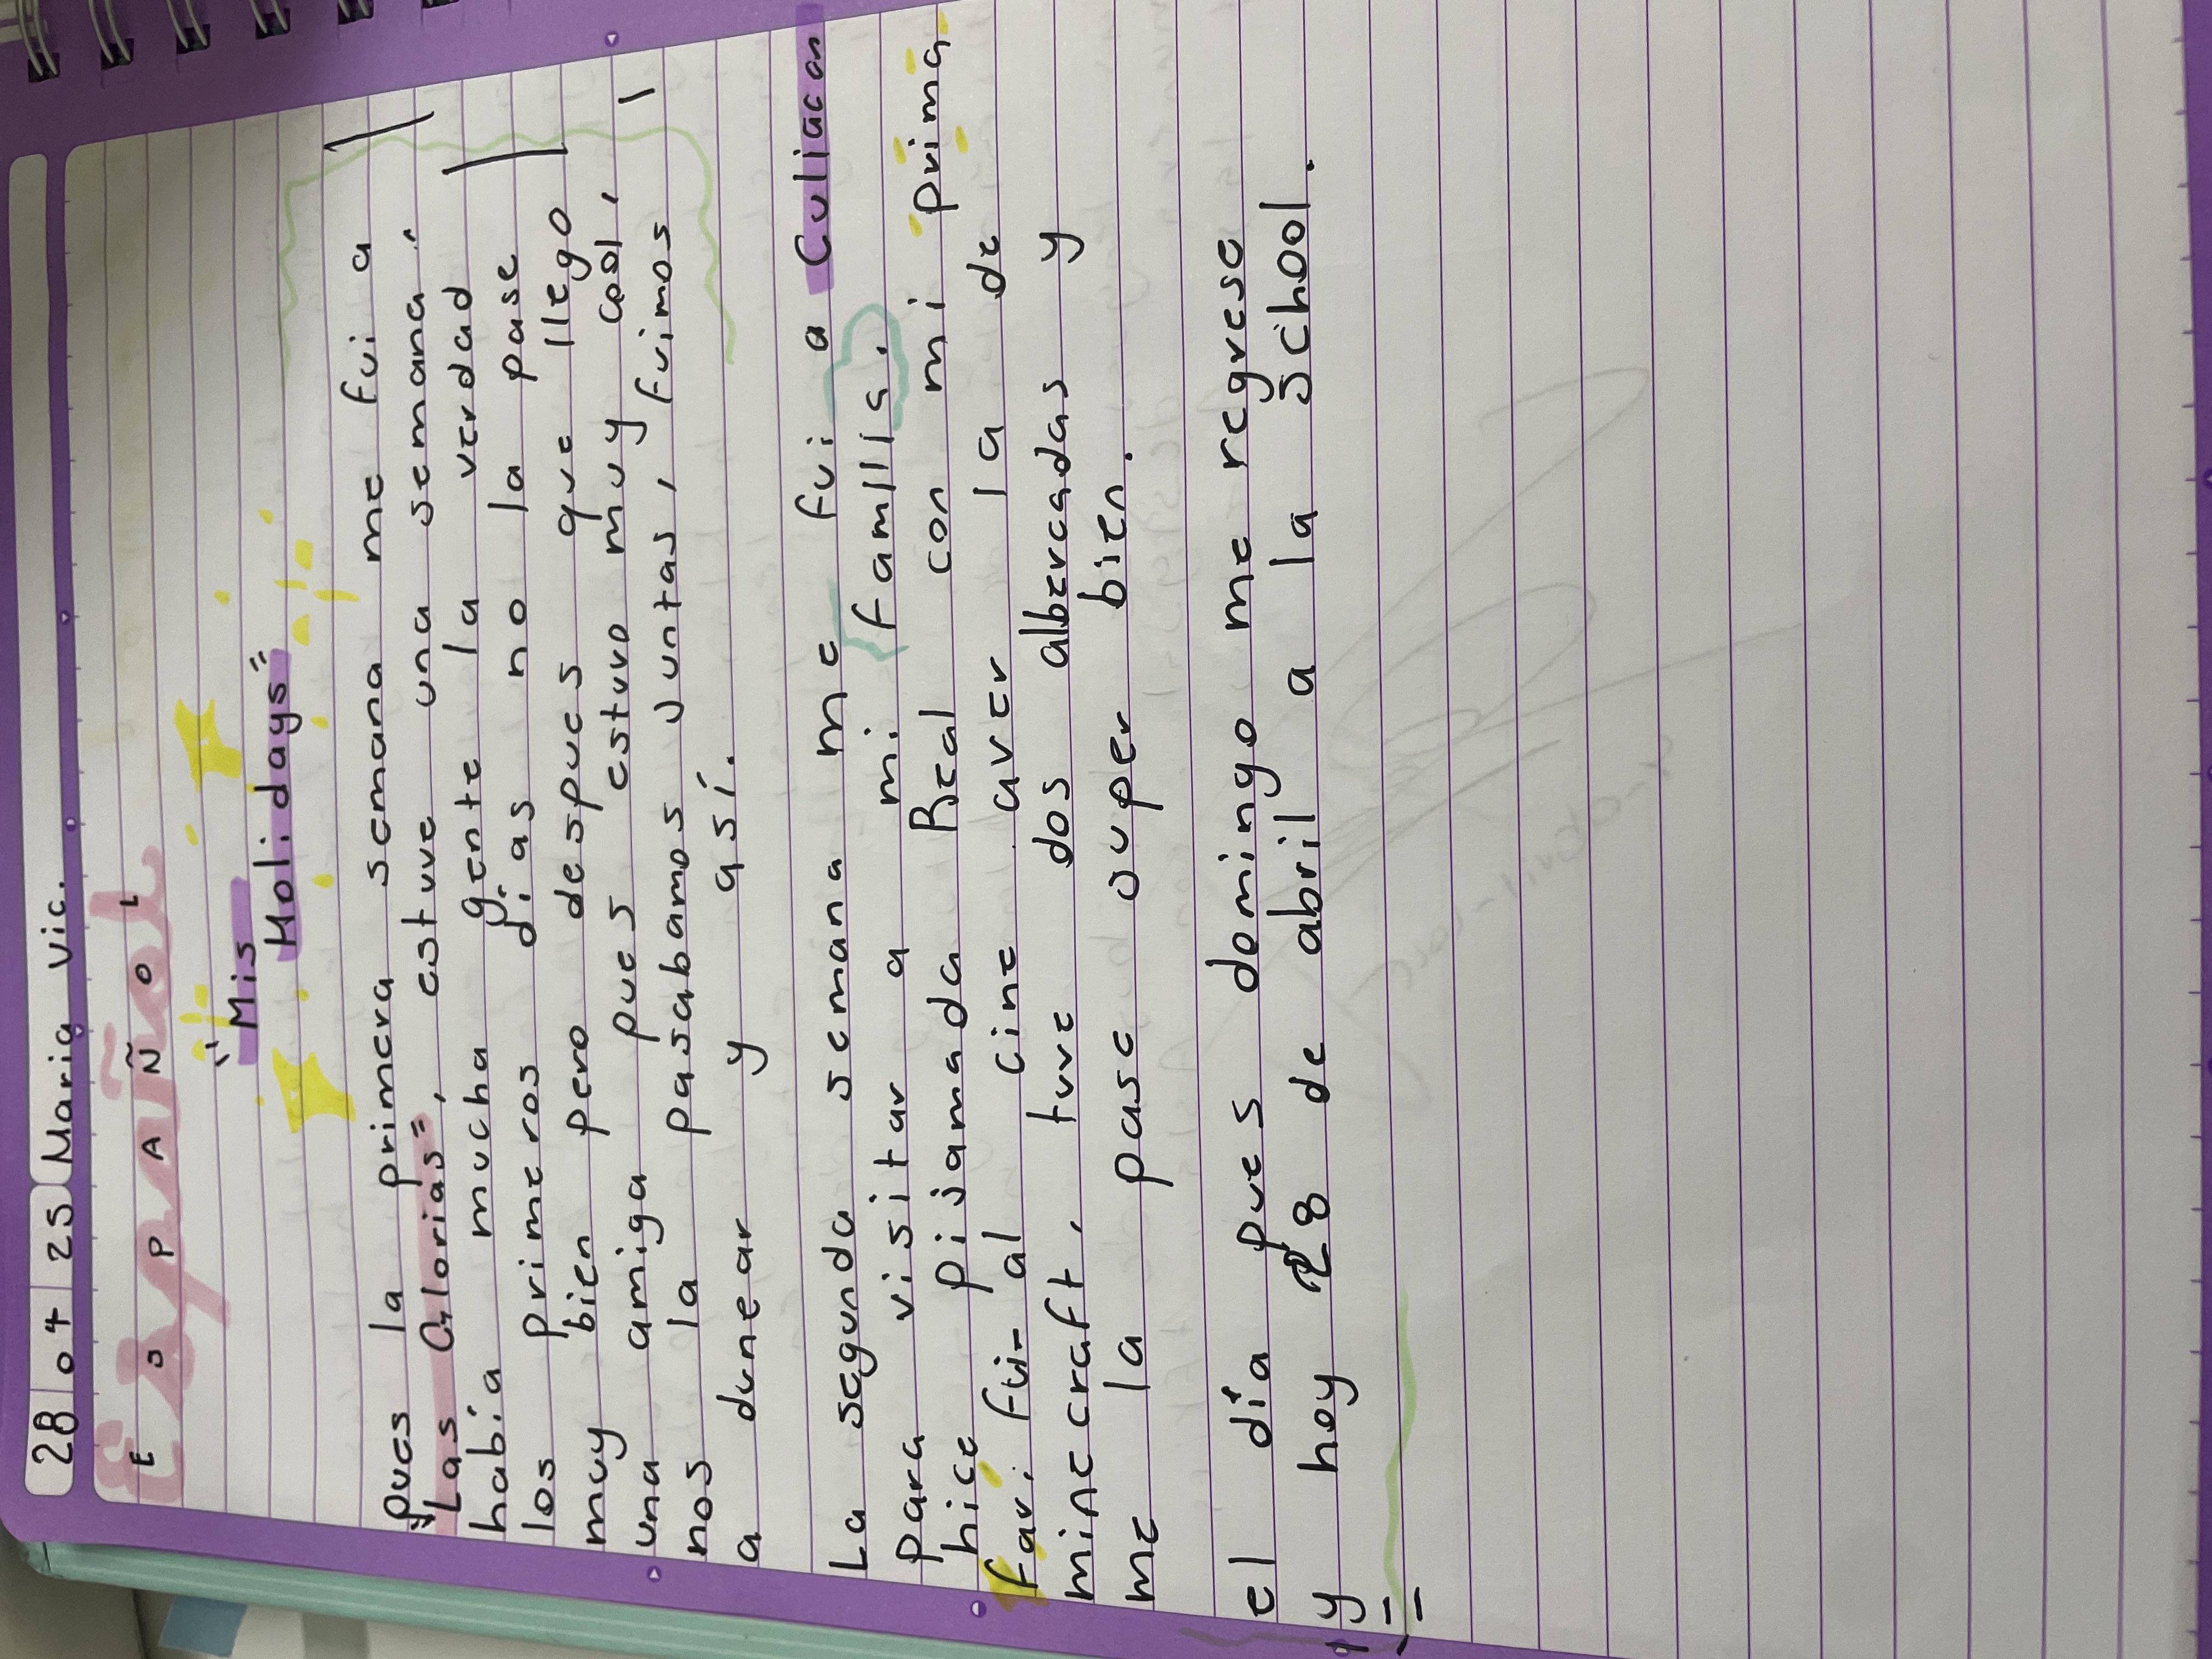 28 04 25 Maria Vic.
Español
E S P A Ñ O L
"Mis
Holidays"
pues la primera semana me fui a
"Las Glorias", estuve una semana,
había mucha gente la verdad
los primeros dias no la pase
muy bien pero despues que llego
una amiga pues estuvo muy cool,
nos la pasabamos juntas, fuimos
a dunear y así.
La segunda semana me fui a Culiacan
para visitar a mi familia.
hice pijamada Real con mi prima
fav. fui al cine aver la de
minecraft, tuve dos albercadas y
me la pase super bien.
el día pues domingo me regrese
y hoy 28 de abril a la school.